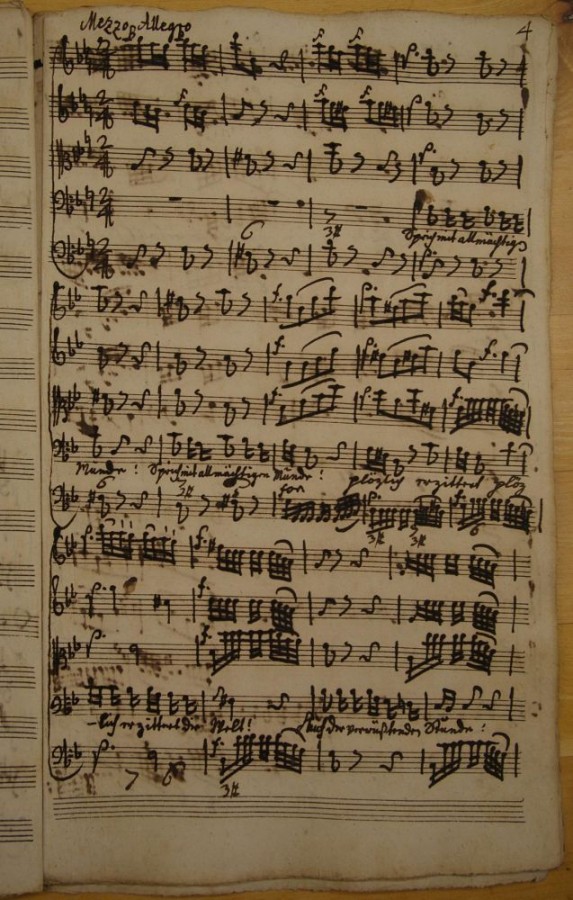 Mezzo Allegro
4
6
3#
Sprich mit allmächtigē
Munde! Sprich mit allmächtigen Munde! plözlich erzittert plöz
6
3#
for
3#
6
-lich erzittert die Welt! Auf der verwüstenden Stunde!
7 6
3#